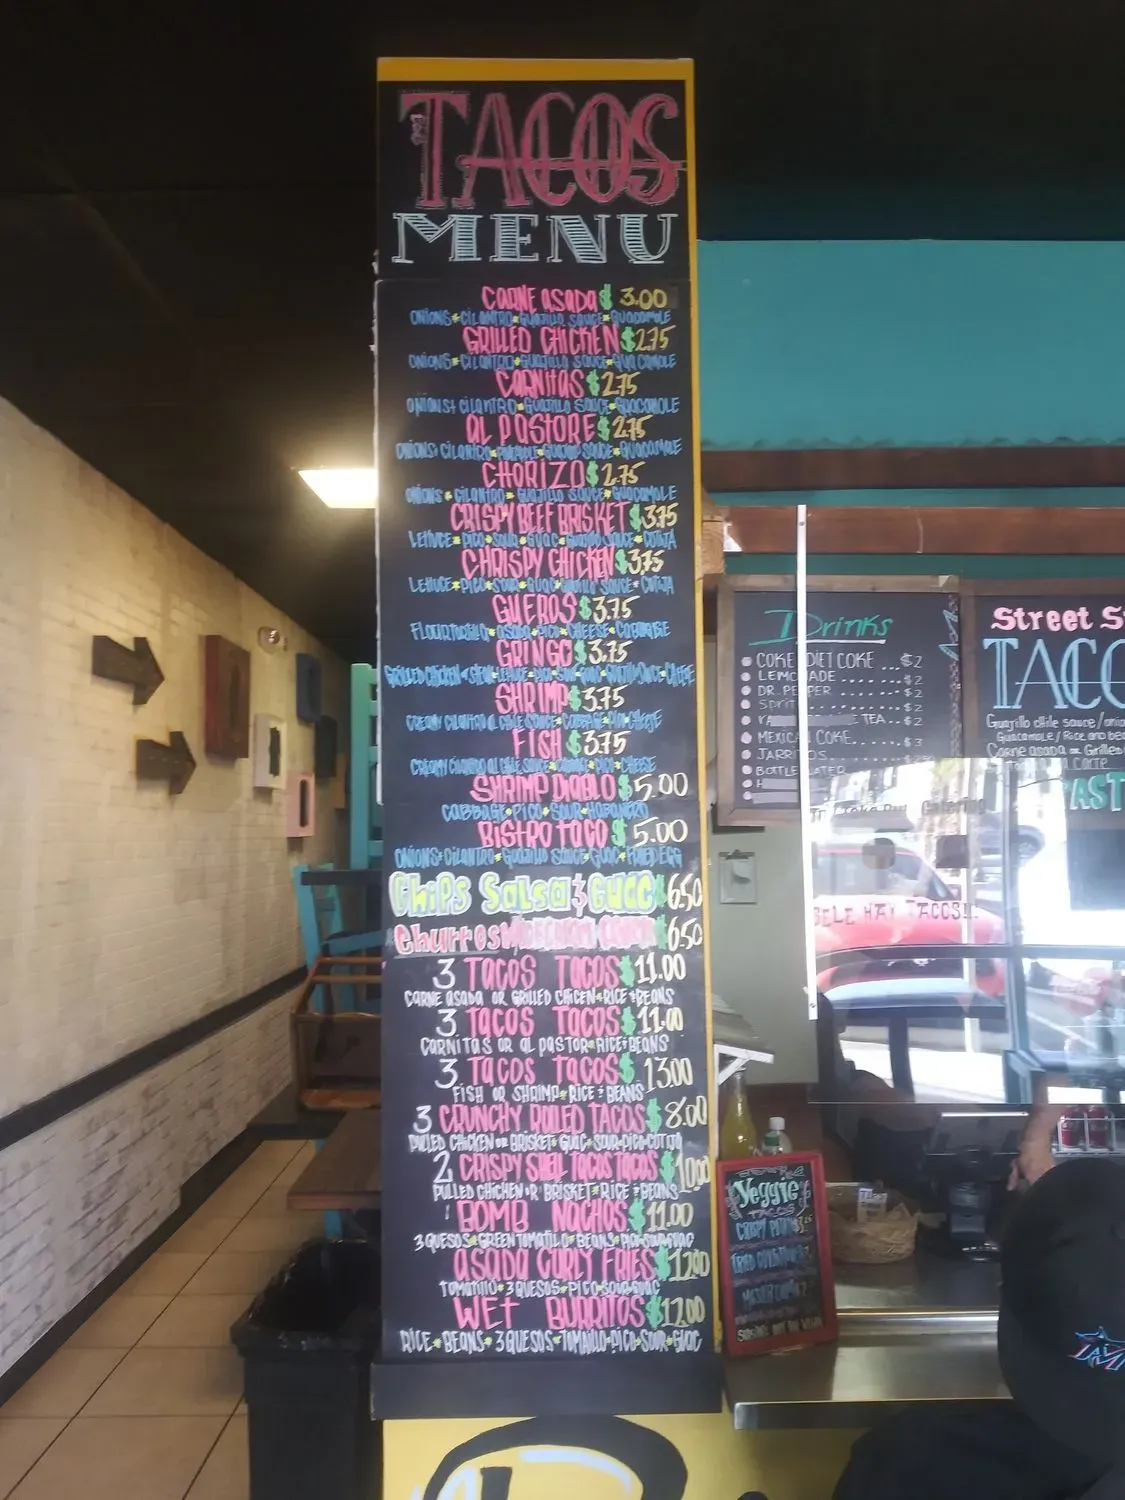 TACOS
MENU
CARNE ASADA $ 3.00
ONIONS * CILANTRO * GUAJILLO SAUCE * GUACAMOLE
GRILLED CHICKEN $2.75
ONIONS * CILANTRO * GUAJILLO SAUCE * GUACAMOLE
CARNITAS $ 2.75
ONIONS * CILANTRO * GUAJILLO SAUCE * GUACAMOLE
AL PASTORE $ 2.75
ONIONS * CILANTRO * SAUCE * GUACAMOLE
CHORIZO $ 2.75
ONIONS * CILANTRO * GUAJILLO SAUCE * GUACAMOLE
CRISPY BEEF BRISKET $3.75
LETTUCE * PICO * SOUR * GUAC * SAUCE * COTIJA
CHRISPY CHICKEN $3.75
LETTUCE * PICO * SOUR * GUAC * SAUCE * COTIJA
GUEROS $3.75
FLOUR TORTILLA * ASADA * PICO * CHEESE * CABBAGE
GRINGO $3.75
GRILLED CHICKEN
SHRIMP $3.75
CREAMY CILANTRO CHILE SAUCE * CABBAGE * PICO * CHEESE
FISH $3.75
CREAMY CILANTRO CHILE SAUCE * PICO * CHEESE
SHRIMP DIABLO $5.00
CABBAGE * PICO * SOUR * HABANERO
BISTRO TACO $5.00
ONIONS * CILANTRO * GUAJILLO SAUCE * GUAC * FRIED EGG
CHIPS SALSA & GUAC $6.50
Churros $6.50
3 TACOS TACOS $11.00
CARNE ASADA OR GRILLED CHICKEN * RICE & BEANS
3 TACOS TACOS $11.00
CARNITAS OR AL PASTOR * RICE & BEANS
3 TACOS TACOS $13.00
FISH OR SHRIMP * RICE & BEANS
3 CRUNCHY ROLLED TACOS $8.00
PULLED CHICKEN OR BRISKET * GUAC * SOUR * PICO * COTIJA
2 CRISPY SHELL TACOS TACOS $10.00
PULLED CHICKEN OR BRISKET * RICE & BEANS
BOMB NACHOS $11.00
3 QUESOS * GREEN TOMATILLO * BEANS * PICO * SOUR * GUAC
ASADA CURLY FRIES $12.00
TOMATILLO * 3 QUESOS * PICO * SOUR * GUAC
WET BURRITOS $12.00
RICE * BEANS * 3 QUESOS * TOMATILLO * PICO * SOUR * GUAC
Drinks
COKE/DIET COKE ... $2
LEMONADE ..... $2
DR. PEPPER ..... $2
SPRITE $2
TEA .. $2
MEXICAN COKE ..... $3
JARRITOS
BOTTLE WATER
Street
TACO
Guajillo chile sauce/
Guacamole/Rice and
Carne asada or Grilled
Catering
HAY TACOS!
Veggie
TACOS
CRISPY